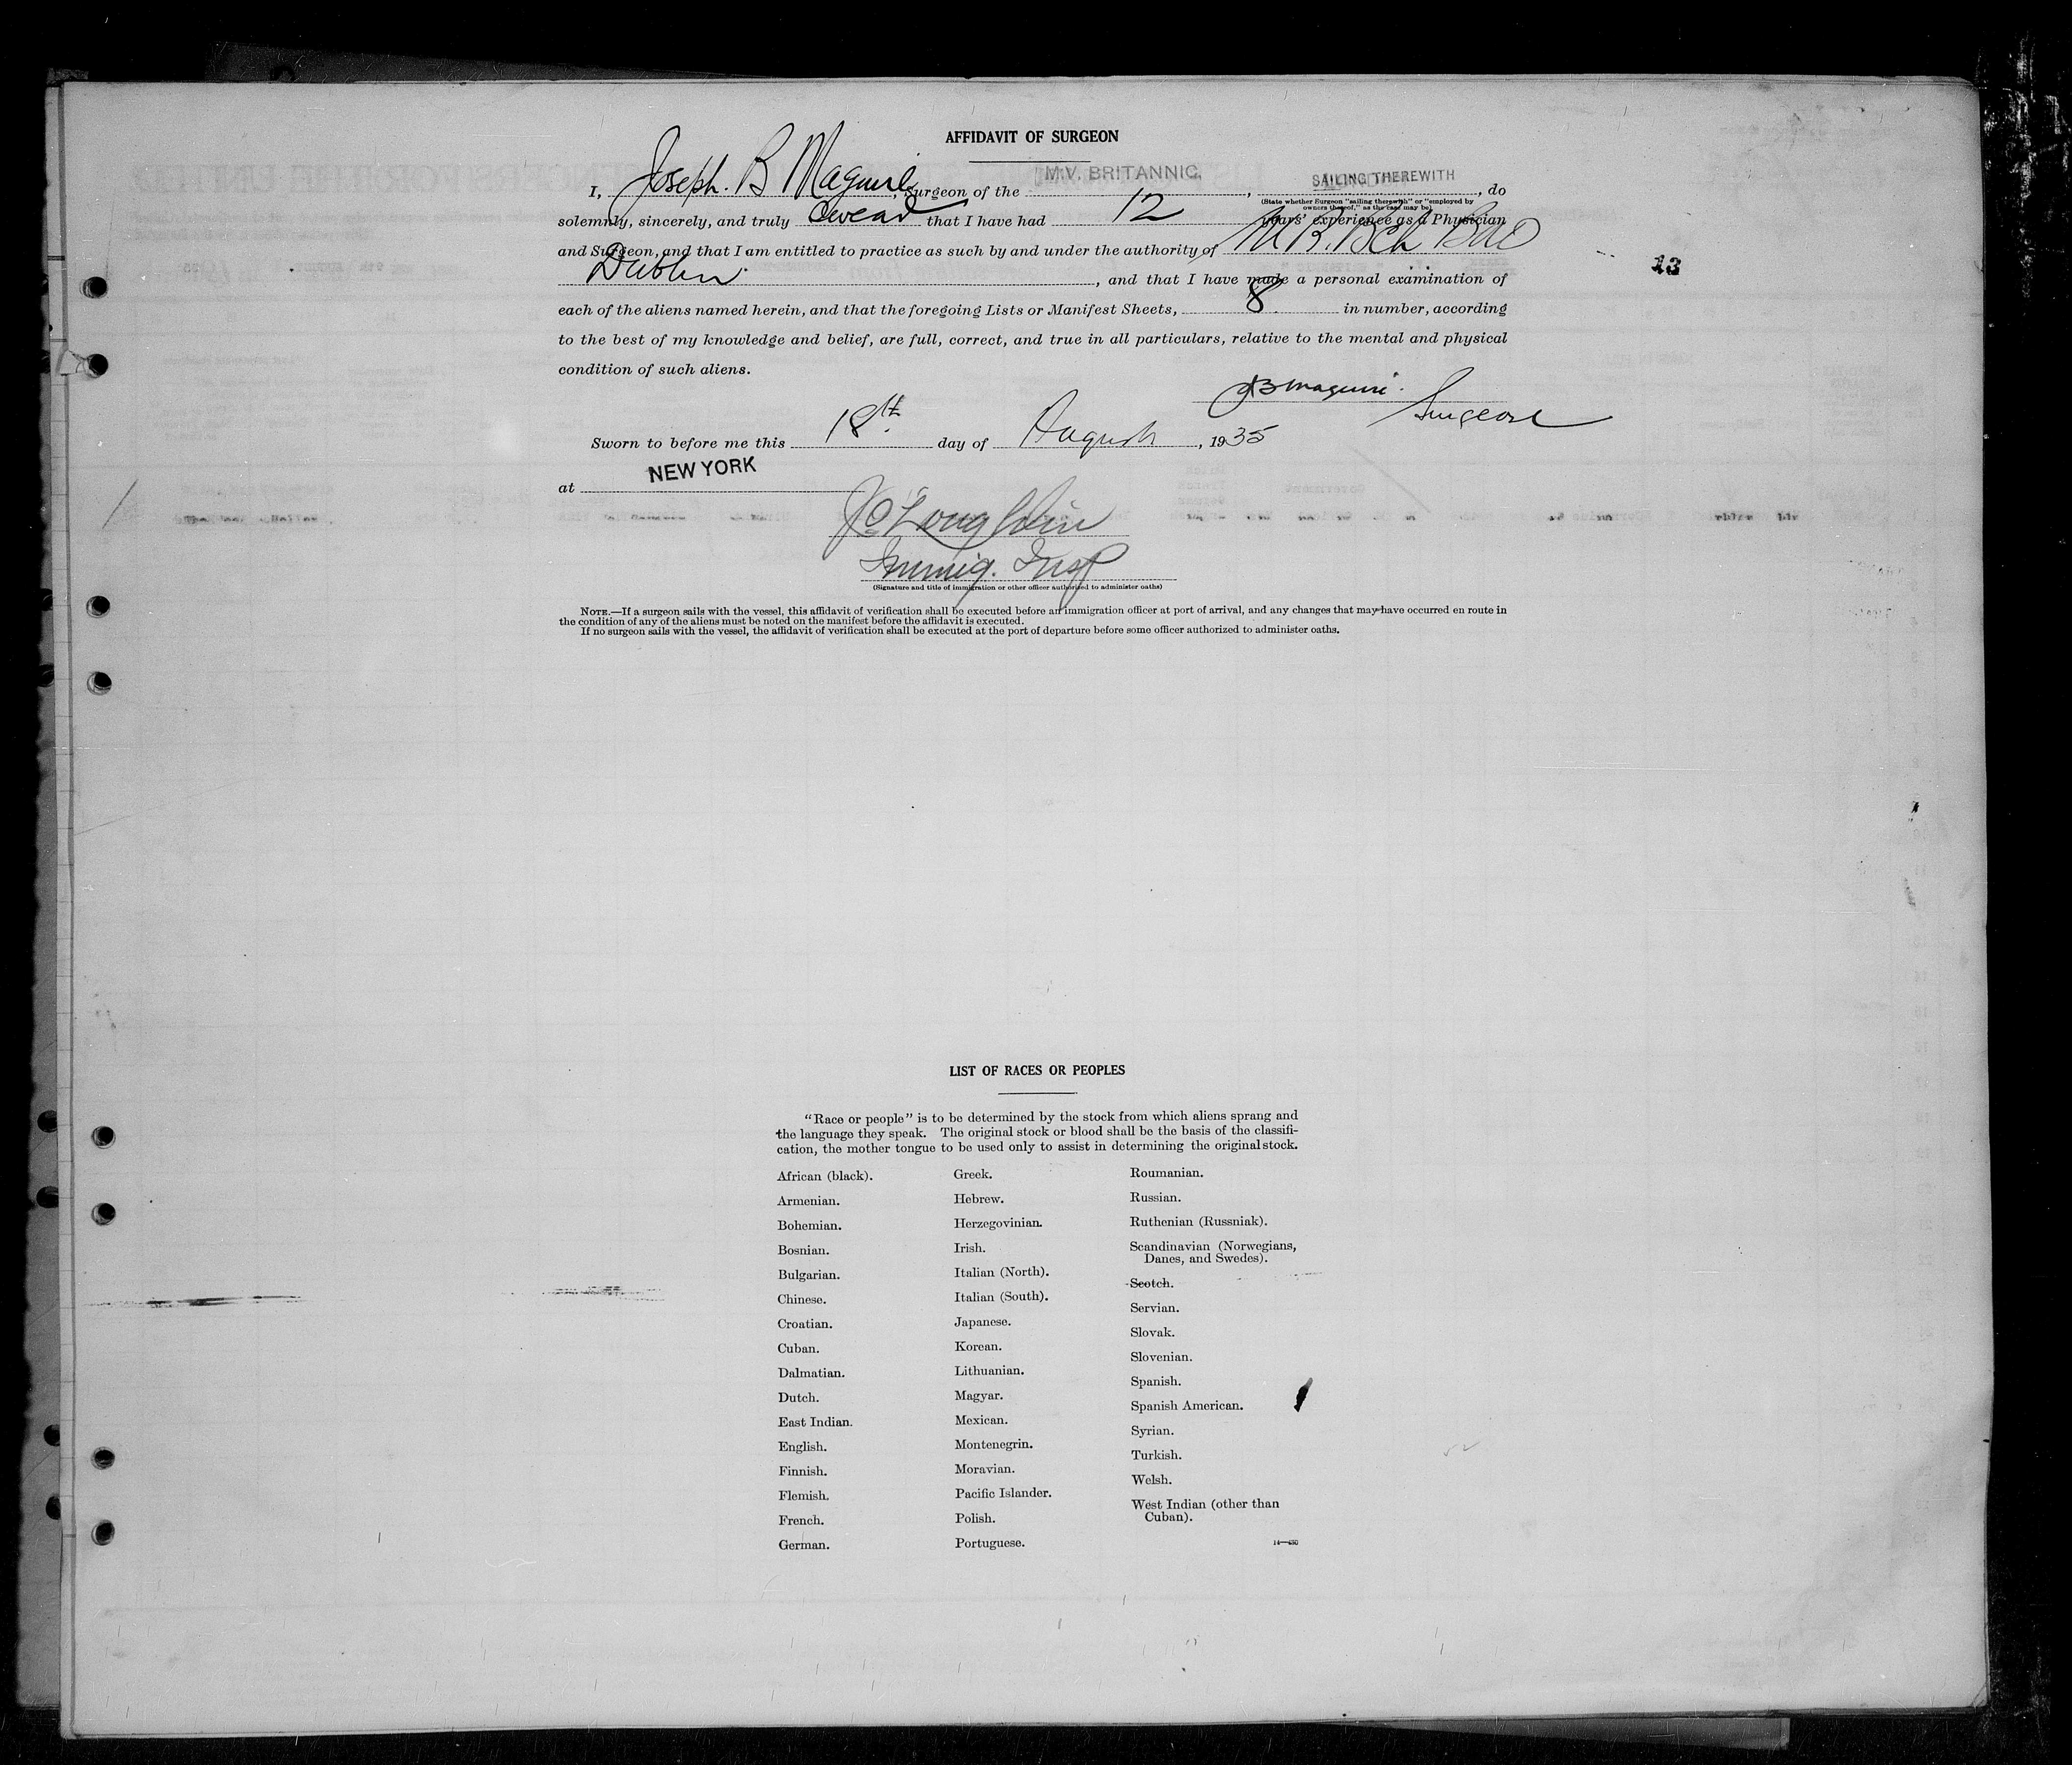 AFFIDAVIT OF SURGEON
I, Joseph. B Maguire, Surgeon of the M.V. BRITANNIC, SAILING THEREWITH, do
(State whether Surgeon "sailing therewith" or "employed by
owners thereof," as the case may be)
solemnly, sincerely, and truly swear that I have had 12 years' experience as a Physician
and Surgeon, and that I am entitled to practice as such by and under the authority of M B. BCh BAO
Dublin., and that I have made a personal examination of
13
each of the aliens named herein, and that the foregoing Lists or Manifest Sheets, 8 in number, according
to the best of my knowledge and belief, are full, correct, and true in all particulars, relative to the mental and physical
condition of such aliens.
JB Maguire.
Surgeon
Sworn to before me this 18th day of August, 1935
at NEW YORK
Immig. Insp
(Signature and title of immigration or other officer authorized to administer oaths)
NOTE.—If a surgeon sails with the vessel, this affidavit of verification shall be executed before an immigration officer at port of arrival, and any changes that may have occurred en route in
the condition of any of the aliens must be noted on the manifest before the affidavit is executed.
If no surgeon sails with the vessel, the affidavit of verification shall be executed at the port of departure before some officer authorized to administer oaths.
LIST OF RACES OR PEOPLES
"Race or people" is to be determined by the stock from which aliens sprang and
the language they speak. The original stock or blood shall be the basis of the classifi-
cation, the mother tongue to be used only to assist in determining the original stock.
African (black).
Armenian.
Bohemian.
Bosnian.
Bulgarian.
Chinese.
Croatian.
Cuban.
Dalmatian.
Dutch.
East Indian.
English.
Finnish.
Flemish.
French.
German.
Greek.
Hebrew.
Herzegovinian.
Irish.
Italian (North).
Italian (South).
Japanese.
Korean.
Lithuanian.
Magyar.
Mexican.
Montenegrin.
Moravian.
Pacific Islander.
Polish.
Portuguese.
Roumanian.
Russian.
Ruthenian (Russniak).
Scandinavian (Norwegians,
Danes, and Swedes).
Scotch.
Servian.
Slovak.
Slovenian.
Spanish.
Spanish American.
Syrian.
Turkish.
Welsh.
West Indian (other than
Cuban).